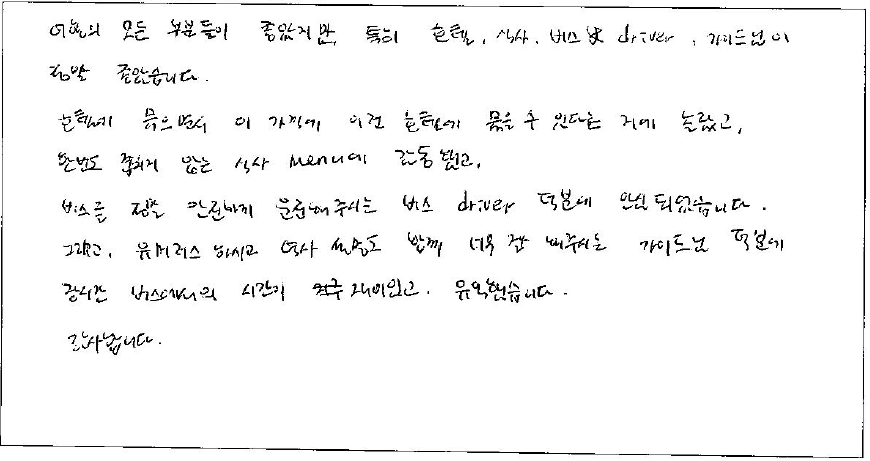 여행의 모든 부분들이 좋았지만, 특히 호텔, 식사, 버스 및 driver, 가이드님이
정말 좋았습니다.
호텔에 묵으면서 이 가격에 이런 호텔에 묵을 수 있다는 거에 놀랐고,
한번도 겹치지 않는 식사 menu에 감동했고,
버스를 정말 안전하게 운전해주시는 버스 driver 덕분에 안심되었습니다.
그리고, 유머러스 하시고 역사 설명도 함께 너무 잘 해주시는 가이드님 덕분에
장시간 버스에서의 시간이 재미있고, 유익했습니다.
감사합니다.